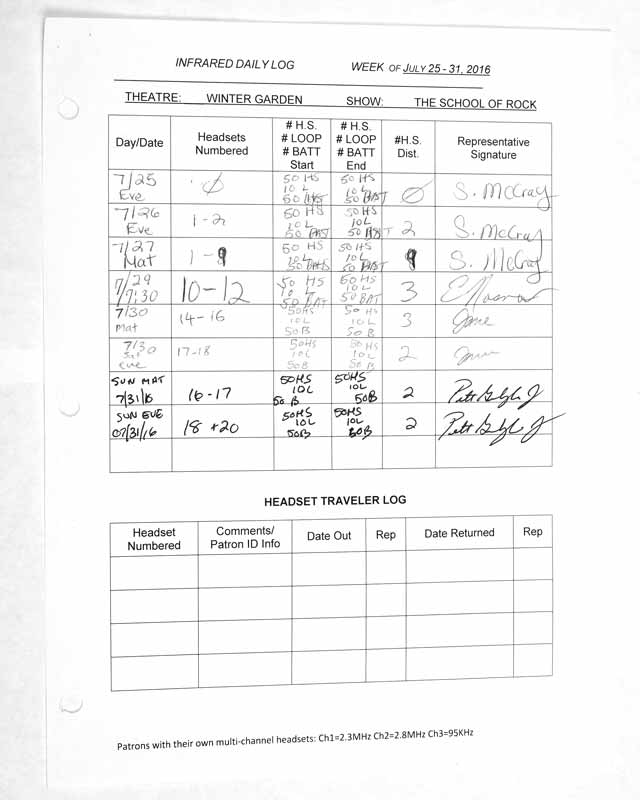 INFRARED DAILY LOG WEEK OF JULY 25 - 31, 2016
THEATRE: WINTER GARDEN SHOW: THE SCHOOL OF ROCK
Day/Date
Headsets
Numbered
# H.S.
# LOOP
# BATT
Start
# H.S.
# LOOP
# BATT
End
#H.S.
Dist.
Representative
Signature
7/25
Eve
Ø
50 HS
10 L
50 BATS
50 HS
10 L
50 BAST
Ø
S. McCray
7/26
Eve
1-2
50 HS
10 L
50 BAST
50HS
10L
50 BAST
2
S. McCray
7/27
Mat
1-9
50 HS
10L
50 BATS
50HS
10L
50 BAST
9
S. McCray
7/29
7:30
10-12
50 HS
10 L
50 BAT
50HS
10L
50 BAT
3
7/30
Mat
14-16
50HS
10L
50B
50 HS
10L
50B
3
7/30
Sat
eve
17-18
50HS
10L
50B
50HS
10L
50B
2
SUN MAT
7/31/16
16-17
50HS
10L
50 B
50HS
10L
50B
2
SUN EVE
07/31/16
18 +20
50HS
10L
50B
50HS
10L
50B
2
HEADSET TRAVELER LOG
Headset
Numbered
Comments/
Patron ID Info
Date Out
Rep
Date Returned
Rep
Patrons with their own multi-channel headsets: Ch1=2.3MHz Ch2=2.8MHz Ch3=95KHz